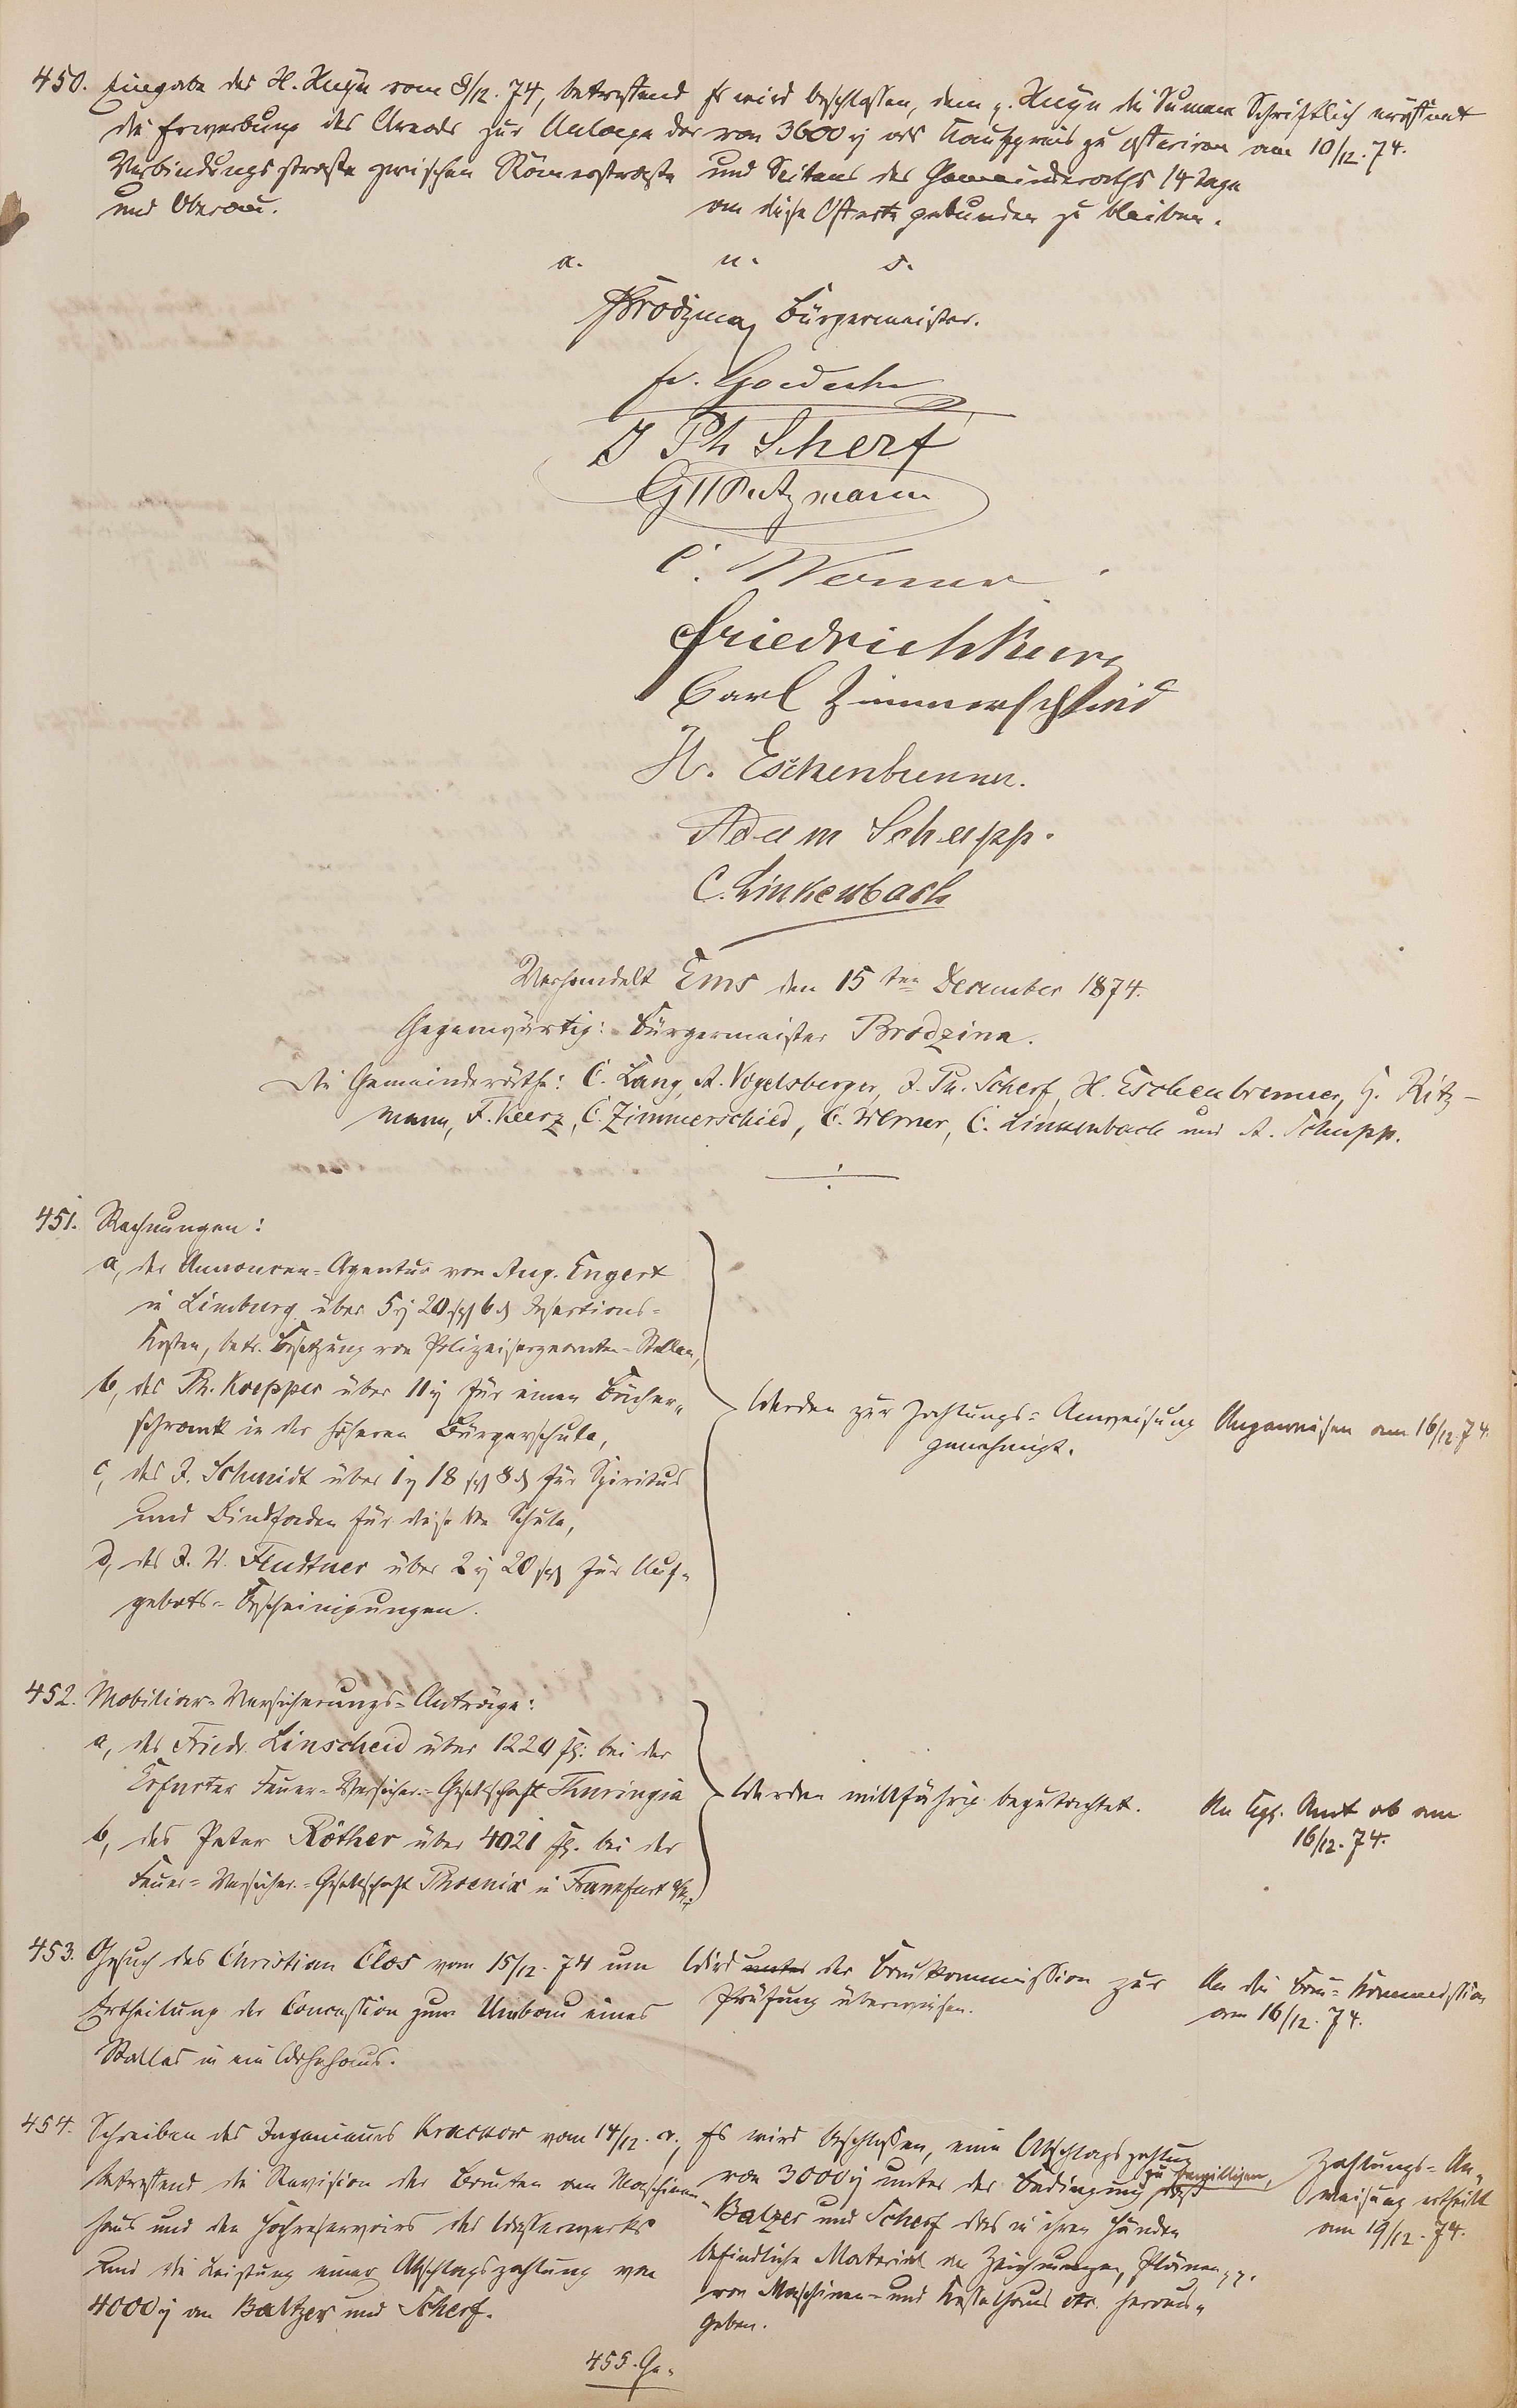 450. Eingabe des H. Huyn vom 8/12. 74, betreffend
die Erwerbung des Areals zur Anlage der
Verbindungsstraße zwischen Römerstraße
und Oberau.
Es wird beschlossen, dem p. Huyn die Summe
von 3600 als Kaufpreis zu offeriren
und Seitens des Gemeinderaths 14 Tage
an diese Offerte gebunden zu bleiben.
Schriftlich eröffnet
am 10/12. 74.
a. u. s.
Bürgermeister.
J Ph Scherf
C. Werner
Carl Zimmerschied
H. Eschenbrenner.
Adam Schupp.
C. Linkenbach
Verhandelt Ems den 15ten December 1874.
Gegenwärtig: Bürgermeister Brodzina.
Die Gemeinderäthe: C. Lang, A. Vogelsberger, J. Ph. Scherf, H. Eschenbrenner, G. Ritz-
mann, F. Keerz, C. Zimmerschied, C. Werner, C. Linkenbach und A. Schupp.
451. Rechnungen:
a, der Annoncen-Agentur von Aug. Engert
in Limburg über 5 20 6 Insertions-
Kosten, betr. Besetzung von Polizeisergeanten-Stellen,
b, des Ph. Koepper über 11 für einen Bücher-
schrank in der höheren Bürgerschule,
c, des J. Schmidt über 1 18 8 für Spiritus
und Bindfaden für dieselbe Schule,
d, des J. W. Feudtner über 2 20 für Auf-
gebots-Bescheinigungen.
Werden zur Zahlungs-Anweisung
genehmigt.
Angewiesen am 16/12. 74.
452. Mobiliar-Versicherungs-Anträge:
a, des Friedr. Linscheid über 1220 fl. bei der
Erfurter Feuer-Versicher.-Gesellschaft Thuringia
b, des Peter Röther über 4021 fl. bei der
Feuer-Versicher.-Gesellschaft Phoenix in Frankfurt a/M.
Werden willfährig begutachtet.
An Kgl. Amt ab am
16/12. 74.
453. Gesuch des Christian Clos vom 15/12. 74 um
Ertheilung der Concession zum Umbau eines
Stalles in ein Wohnhaus.
Wird unter der Baukommission zur
Prüfung überwiesen.
An die Bau-Kommission
am 16/12. 74.
454. Schreiben des Ingenieurs Krackow vom 14/12. c.,
betreffend die Revision der Bauten am Maschinen-
haus und den Hochreservoirs des Wasserwerks
und die Leistung einer Abschlagszahlung von
4000 an Baltzer und Scherf.
Es wird beschlossen, eine Abschlagszahlung
von 3000 unter der Bedingung zu bewilligen, daß
Balzer und Scherf das in ihren Händen
befindliche Material an Zeichnungen, Plänen pp.
von Maschinen- und Kesselhaus etc. heraus-
geben.
Zahlungs-An-
weisung ertheilt
am 19/12. 74.
455. Ge-